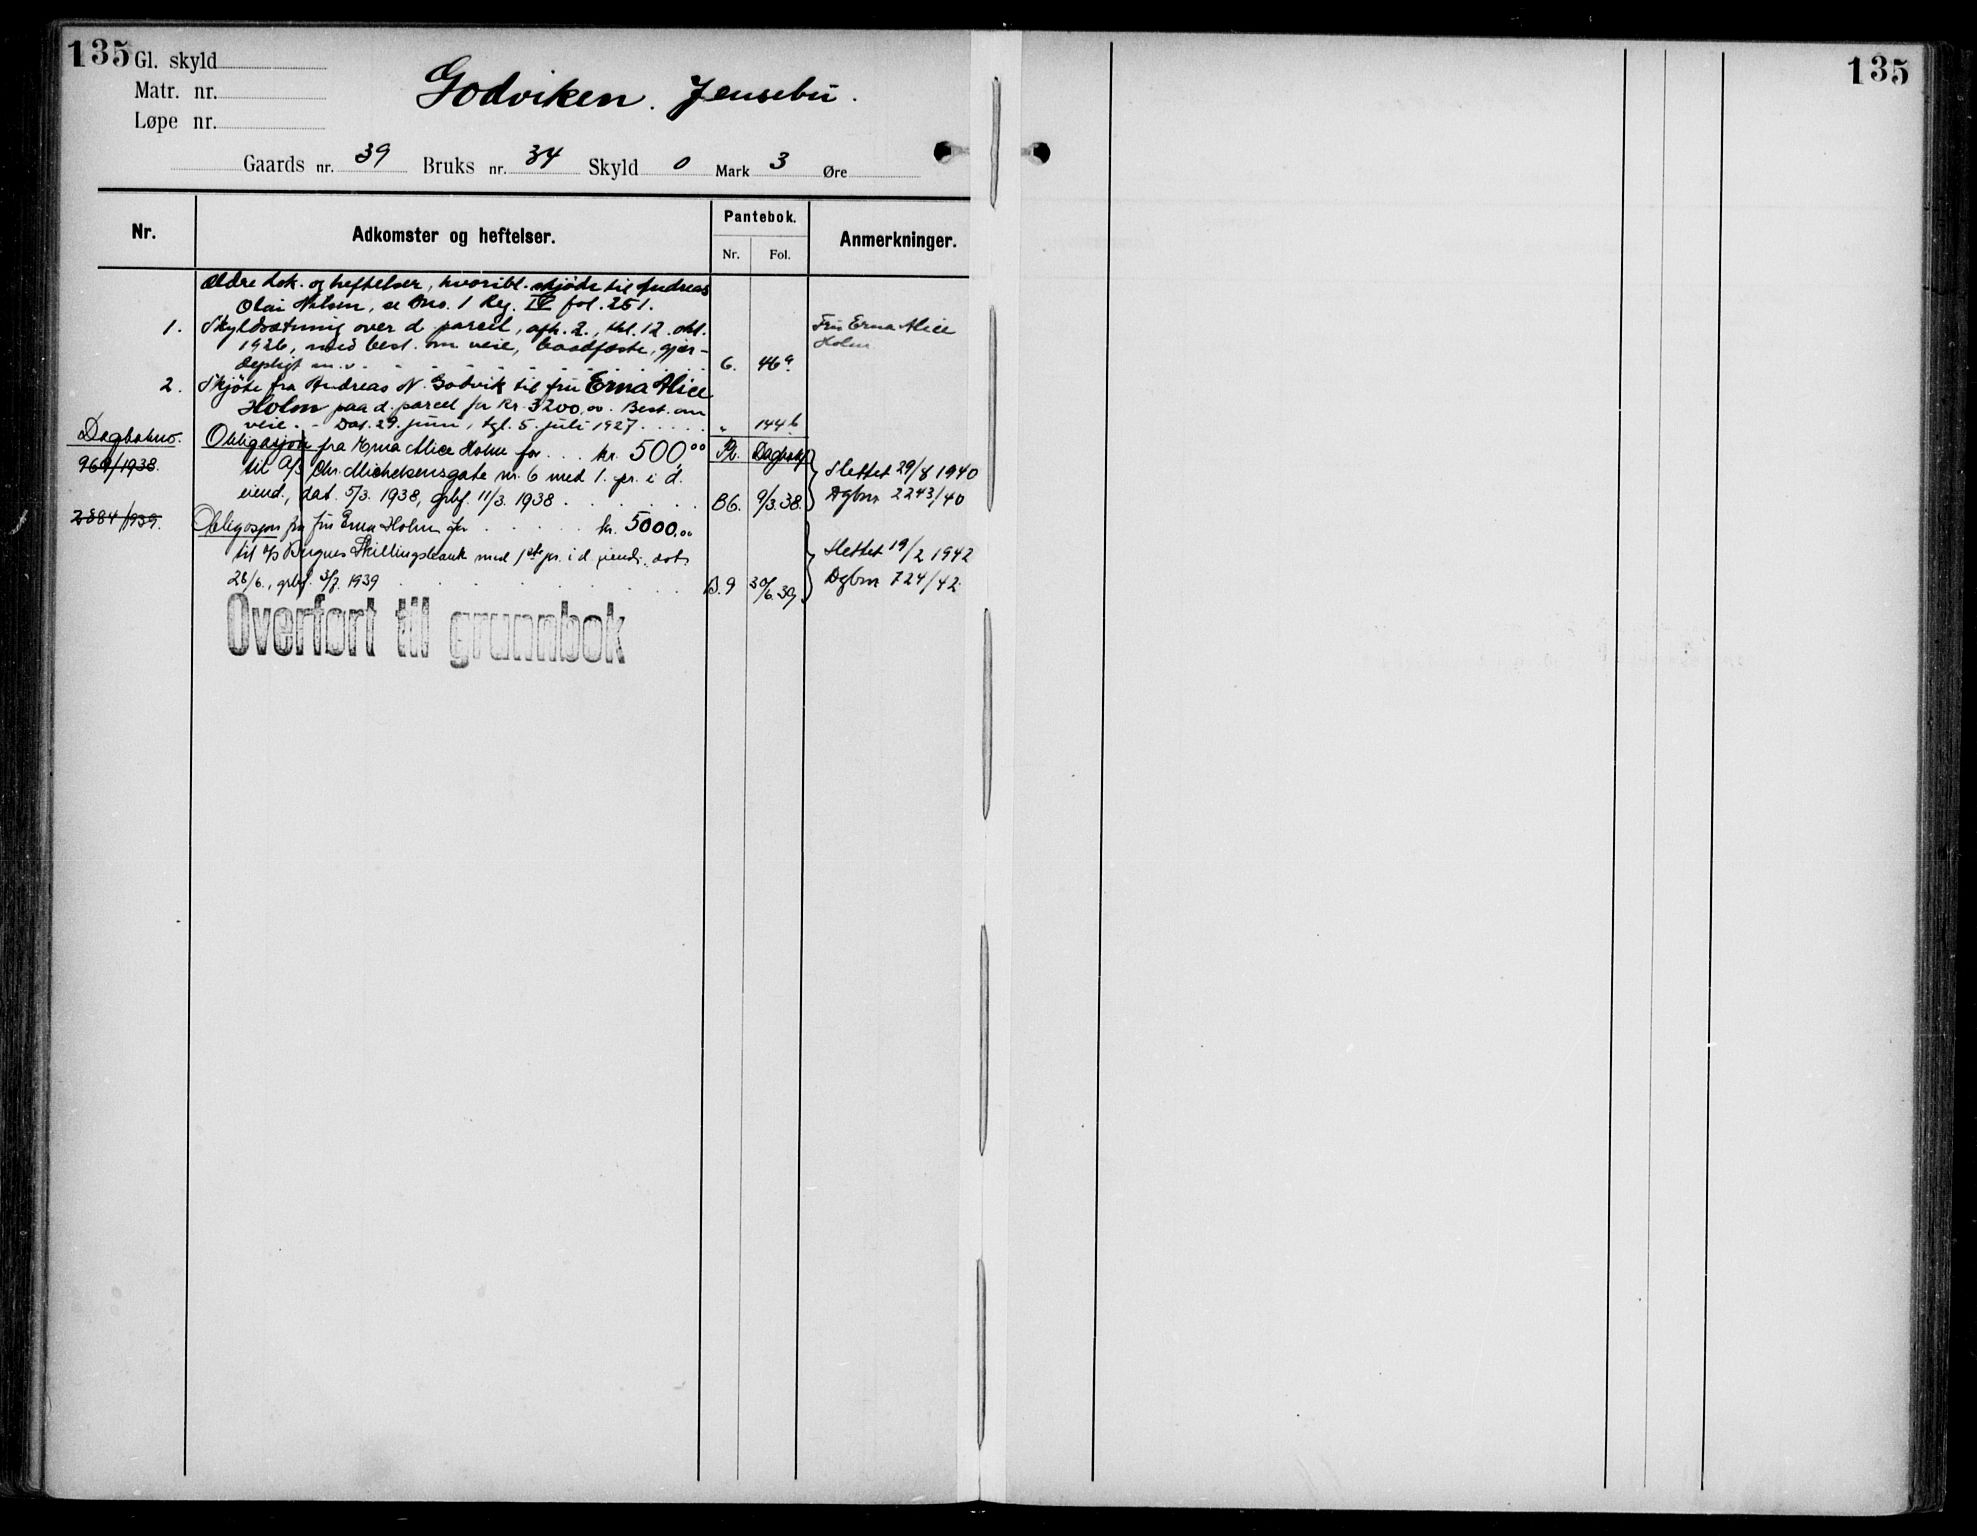 135
Gl. skyld
Matr. nr.
Løpe nr.
Godviken. Jensebu.
Gaards nr. 39 Bruks nr. 34 Skyld 0 Mark 3 Øre
135
Nr.
Adkomster og heftelser.
Pantebok.
Nr. Fol.
Anmerkninger.
Ældre dok. og heftelser, hvoribl. skjöte til Andreas
Olai Nilsen, se Bno. 1 Reg. IV fol. 251.
1. Skyldsætning over d. parcel, afh. 2., thl. 12. okt.
1926, med best. om veie, baadfæste, gjær-
depligt m.v. 6. 46a
Fru Erna Alice
Holm
2. Skjöte fra Andreas N. Godvik til fru Erna Alice
Holm paa d. parcel for kr. 3200,00. Best. om
veie. - Dat. 29. juni, tgl. 5. juli 1927 " 144b
Dagbokno.
969/1938. Obligasjon fra Erna Alice Holm for kr. 500,00 Pb. Dagbokf
til A/S Chr. Michelsensgate nr. 6 med 1. pr. i d.
eiend., dat. 5/3. 1938, grbf. 11/3. 1938 B6. 9/3.38.
Slettet 29/8 1940
Dgbnr 2243/40
2384/1939. Obligasjon fra fru Erna Holm for kr. 5000,00
til A/S Bergens Skillingsbank med 1ste pr. i d. eiend., dat.
28/6., grbf. 3/7. 1939 B.9 30/6.39
Slettet 19/2 1942
Dgbnr 724/42
Overført til grunnbok